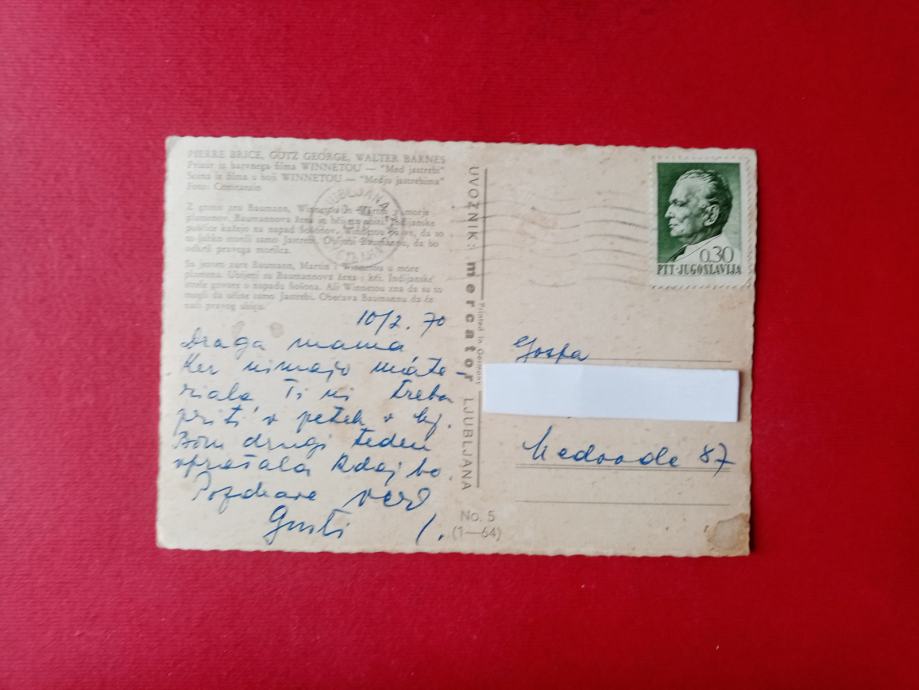 PIERRE BRICE, GÖTZ GEORGE, WALTER BARNES
Prizor iz barvnega filma WINNETOU — "Med jastrebi"
Scena iz filma u boji WINNETOU — "Medju jastrebima"
Foto: Constantin
Z grozo zro Baumann, Winnetou in Martin v morje
plamenov. Baumannova žena in hči ubiti. Indijanske
puščice kažejo na napad Šošonov. Winnetou ve, da so
to lahko storili samo Jastrebi. Obljubi Baumannu, da bo
odkril pravega morilca.
Sa jezom zure Baumann, Martin i Winnetou u more
plamena. Ubijeni su Baumannova žena i kći. Indijanske
strele govore o napadu Šošona. Ali Winnetou zna da su to
mogli da učine samo Jastrebi. Obećava Baumannu da će
naći pravog ubicu.
10/2. 70
Draga mama
Ker nimajo mate-
riala Ti ni treba
priti v petek v Lj.
Bom drugi teden
vprašala kdaj bo.
Pozdrave
Gusti
UVOZNIK: mercator LJUBLJANA
Printed in Germany
No. 5
(1—64)
LJUBLJANA
0.30
PTT·JUGOSLAVIJA
Gospa
Medvode 87